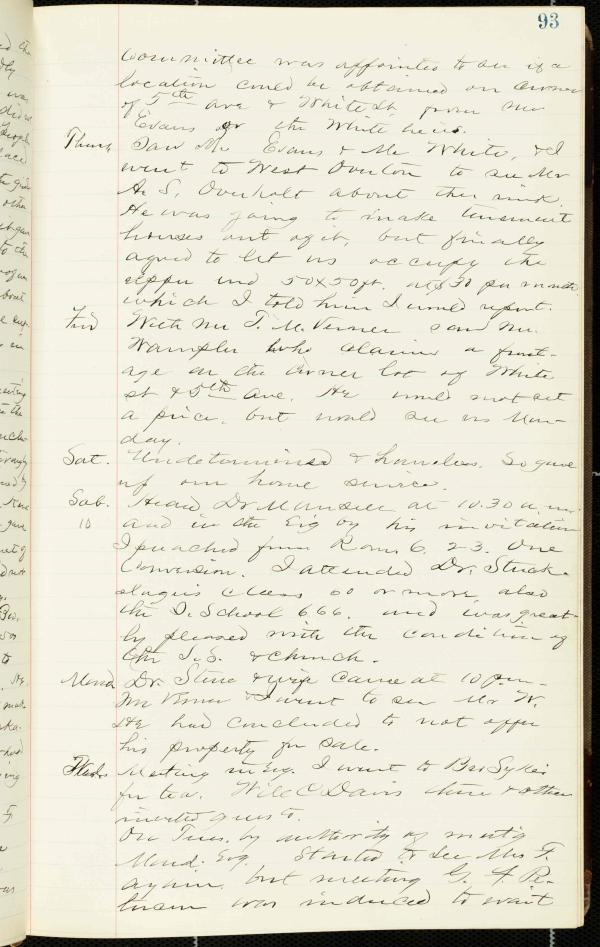 93
Committee was appointed to see if a
location could be obtained on corner
of 5th Ave & White St. from Mr
Evans or the White heirs.
Thurs. Saw Mr Evans & Mr White, & I
went to West Overton to see Mr
A. S. Overholt about the rink.
He was going to make tenement
houses out of it, but finally
agreed to let us occupy the
upper end 50x50 ft. at $30 per month
which I told him I would report.
Frid With Mr T. M. Verner saw Mr.
Wampler who claims a front-
age on the corner lot of White
st & 5th Ave. He would not set
a price, but would see us Mon-
day.
Sat. Undetermined & homeless. So gave
up our home service.
Sab. Heard Dr Munsell at 10.30 a.m.
10 and in the Eig by his invitation
I preached from Rom. 6. 23. One
Conversion. I attended Dr.
class 60 or more, also
the S. School 666. and was great-
ly pleased with the condition of
the S.S. & church.
Mond. Dr. & wife came at 10 p.m.
Mr Verner & I went to see Mr W.
He had concluded to not offer
his property for sale.
Meeting in Eig. I went to Bro Sykes
for tea. Will C Davis there & other
invited guests.
On Tues. by authority of meet'g
Mond. Eig. Started to see Mrs F.
again, but meeting G. F. R-
was induced to wait